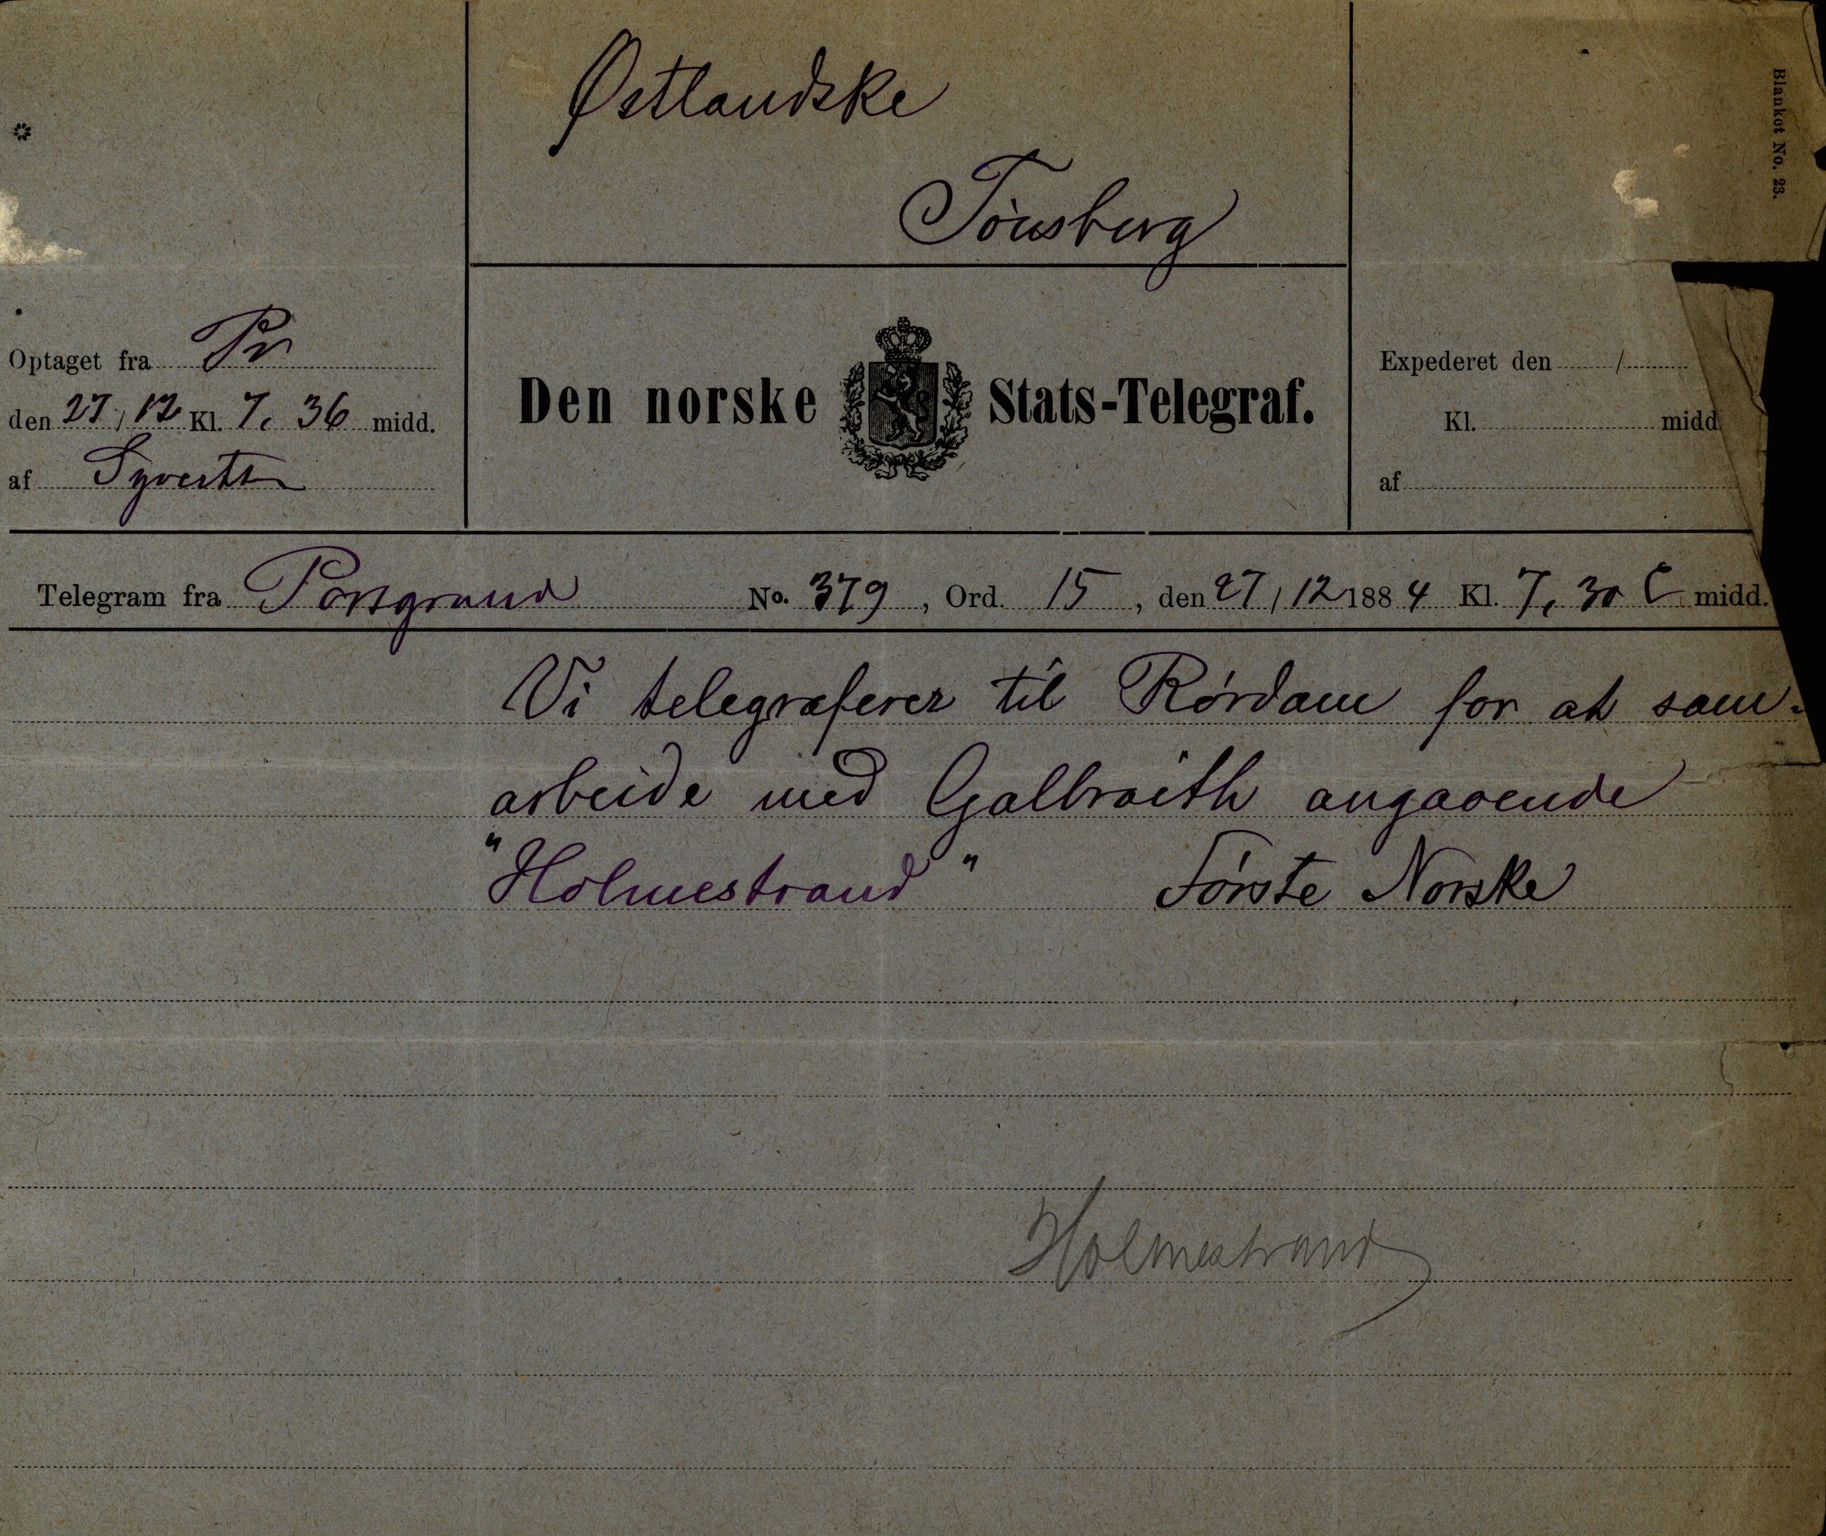 Østlandske
Tönsberg
Blanket No. 23.
Optaget fra Pr
den 27/12 Kl. 7,36 midd.
af Syverts
Den norske Stats-Telegraf.
Expederet den /
Kl. midd
af
Telegram fra Porsgrund No. 379, Ord. 15, den 27/12 1884 Kl. 7,30 E midd.
Vi telegraferer til Rórdam for at sam-
arbeide med Galbraith angaaende
"Holmestrand" Förste Norske
Holmestrand